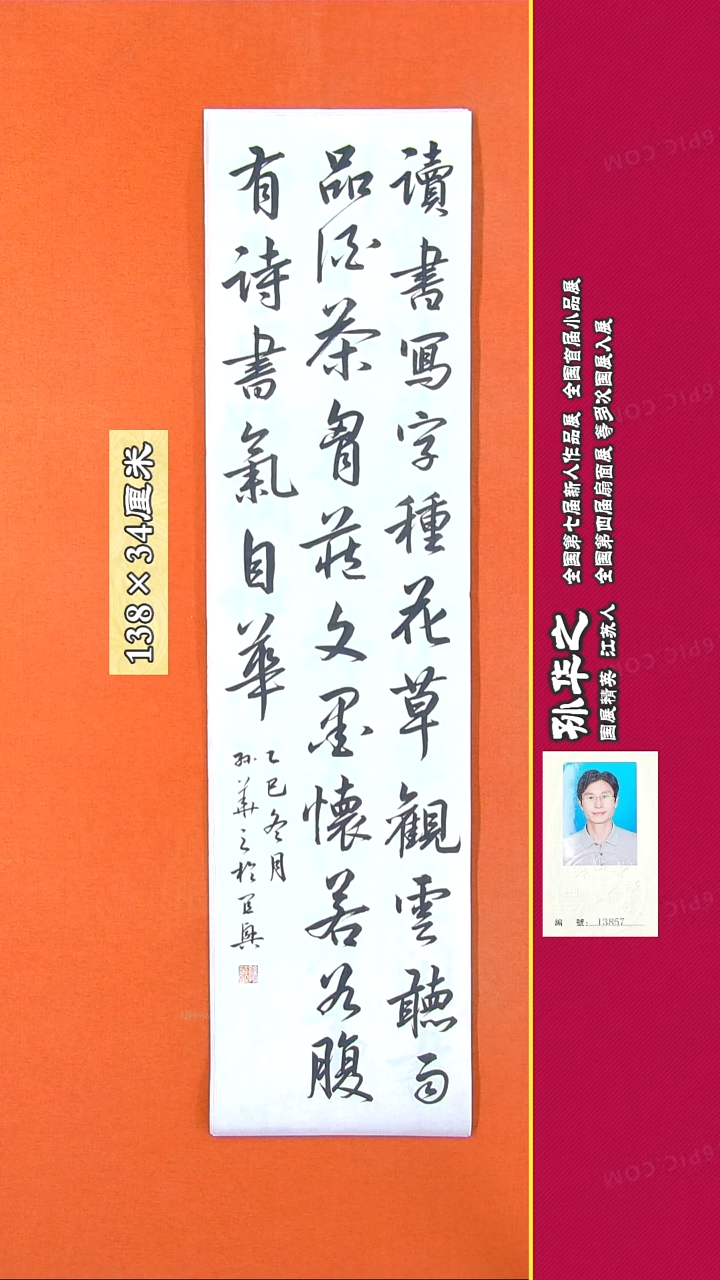 讀書寫字種花草觀雲聽雨
品酒茶胷莊文墨懷若谷腹
有詩書氣自華
乙巳冬月
孙華之於宜興
138×34厘米
孙华之
國展精英 江苏人
全國第七届新人作品展 全國首届小品展
全國第四届扇面展 等多次國展入展
編 號: 13857
6PIC.COM
6PIC.COM
6PIC.COM
6PIC.COM
6PIC.COM